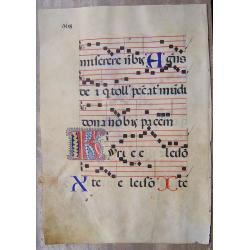 miserere nobis Agnus
dei qui toll pecat mudi
dona nobis pacem
Kyri e e leiso
Xte e leiso Xte